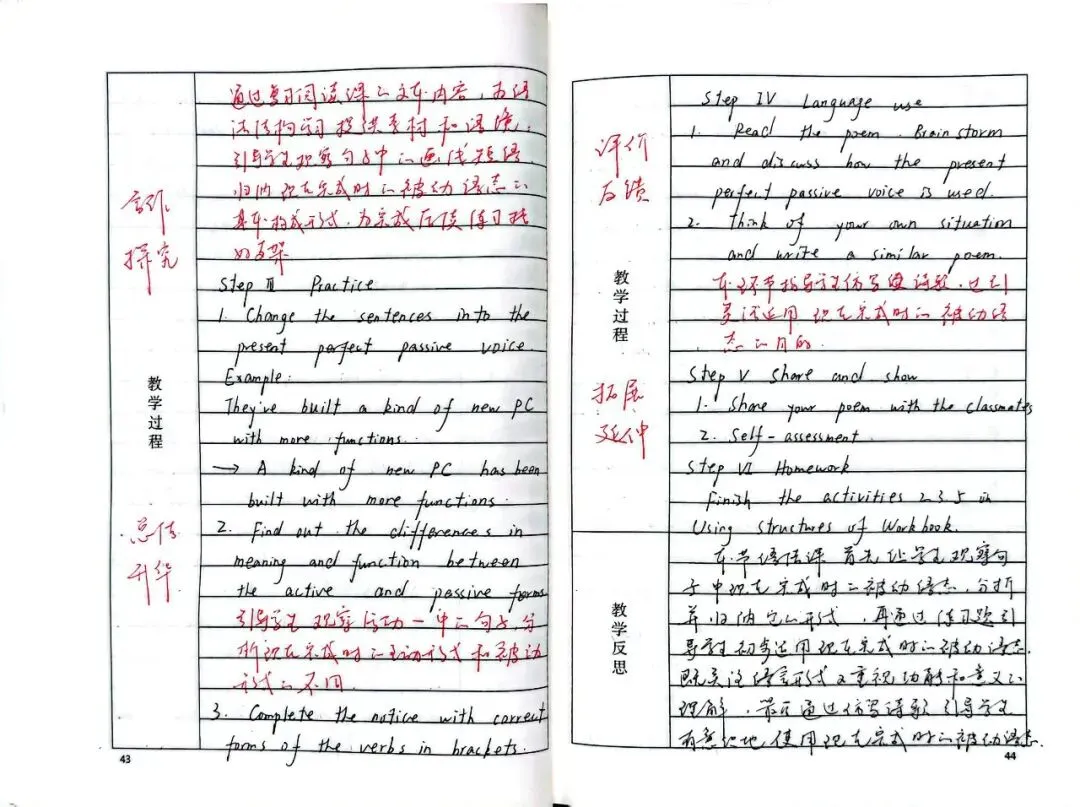 通过复习阅读课的文本内容，为语
法结构学习提供素材和语境，
引导学生观察句子中的画线短语，
归纳现在完成时的被动语态的
基本构成形式，为完成后续练习搭
好支架
合作
探究
Step Ⅲ Practice
1. Change the sentences into the
present perfect passive voice.
Example:
They've built a kind of new PC
with more functions.
→ A kind of new PC has been
built with more functions.
教学过程
2. Find out the differences in
meaning and function between
the active and passive forms
总结
升华
引导学生观察活动一中的句子，分
析现在完成时的主动形式和被动
形式的不同.
3. Complete the notice with correct
forms of the verbs in brackets.
43
Step IV Language use
1. Read the poem. Brainstorm
and discuss how the present
perfect passive voice is used.
2. Think of your own situation
and write a similar poem.
评价
反馈
本环节指导学生仿写诗歌，达到
灵活运用现在完成时的被动语
态的目的.
教学过程
Step V Share and show
1. Share your poem with the classmates
2. Self-assessment.
拓展
延伸
Step VI Homework
Finish the activities 2.3.5 in
Using structures of Workbook.
本节语法课首先让学生观察句
子中现在完成时的被动语态，分析
并归纳它的形式，再通过练习题引
导学生初步运用现在完成时的被动语态.
既关注语言形式又重视功能和意义的
理解，最后通过仿写诗歌引导学生
有意识地使用现在完成时的被动语态.
教学反思
44